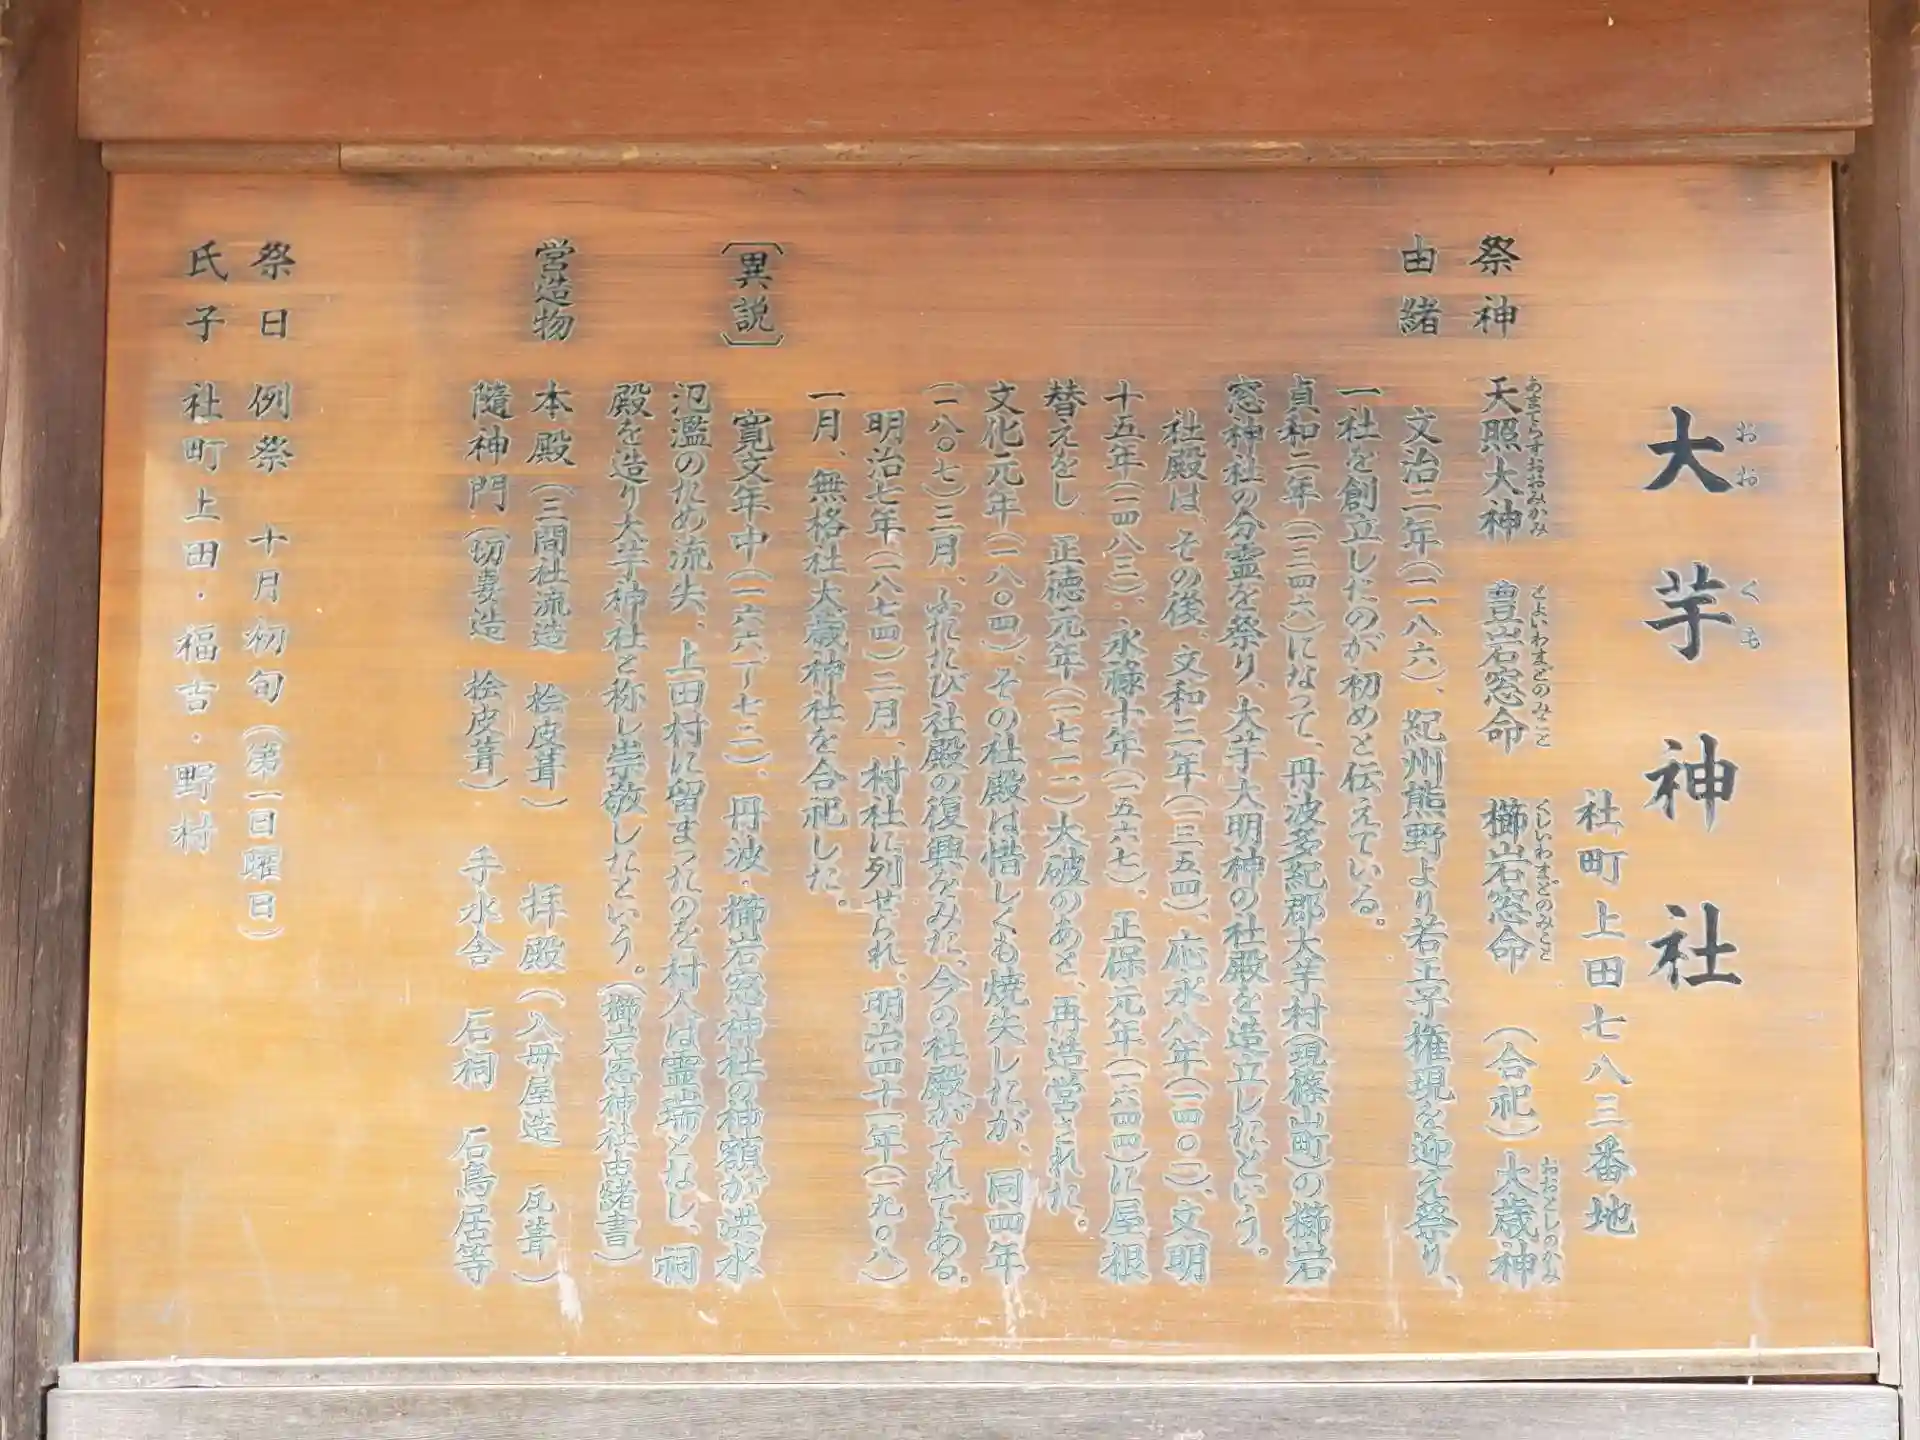 大芋神社
おおくも
社町上田七八三番地
祭神 天照大神 豊岩窓命 櫛岩窓命 (合祀)大歳神
あまてらすおおみかみ とよいわまどのみこと くしいわまどのみこと おおとしのかみ
由緒 文治二年(一一八六)、紀州熊野より若王子権現を迎え祭り、
一社を創立したのが初めと伝えている。
貞和二年(一三四六)になって、丹波多紀郡大芋村(現篠山町)の櫛岩
窓神社の分霊を祭り、大芋大明神の社殿を造立したという。
社殿は、その後、文和三年(一三五四)、応永八年(一四〇一)、文明
十五年(一四八三)、永禄十年(一五六七)、正保元年(一六四四)に屋根
替えをし、正徳元年(一七一一)大破のあと、再造営された。
文化元年(一八〇四)、その社殿は惜しくも焼失したが、同四年
(一八〇七)三月、ふたたび社殿の復興をみた、今の社殿がそれである。
明治七年(一八七四)二月、村社に列せられ、明治四十一年(一九〇八)
一月、無格社大歳神社を合祀した。
〔異説〕 寛文年中(一六六一〜七二)、丹波・櫛岩窓神社の神額が洪水
氾濫のため流失、上田村に留まったのを村人は霊端となし、祠
殿を造り大芋神社と称し崇敬したという。(櫛岩窓神社由緒書)
営造物 本殿(三間社流造 桧皮葺) 拝殿(入母屋造 瓦葺)
隨神門(切妻造 桧皮葺) 手水舎 石祠 石鳥居等
祭日 例祭 十月初旬(第一日曜日)
氏子 社町上田・福吉・野村